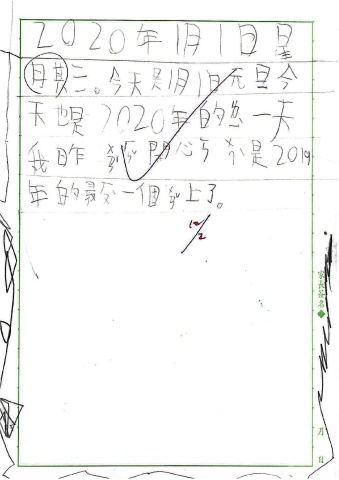 2020年1月1日星
期三。今天是1月1日元旦今
天也是2020年的ㄉㄧˋ一天
我昨 開心ㄎ 是2019
年的最 一個 上了。
1/2
月 日